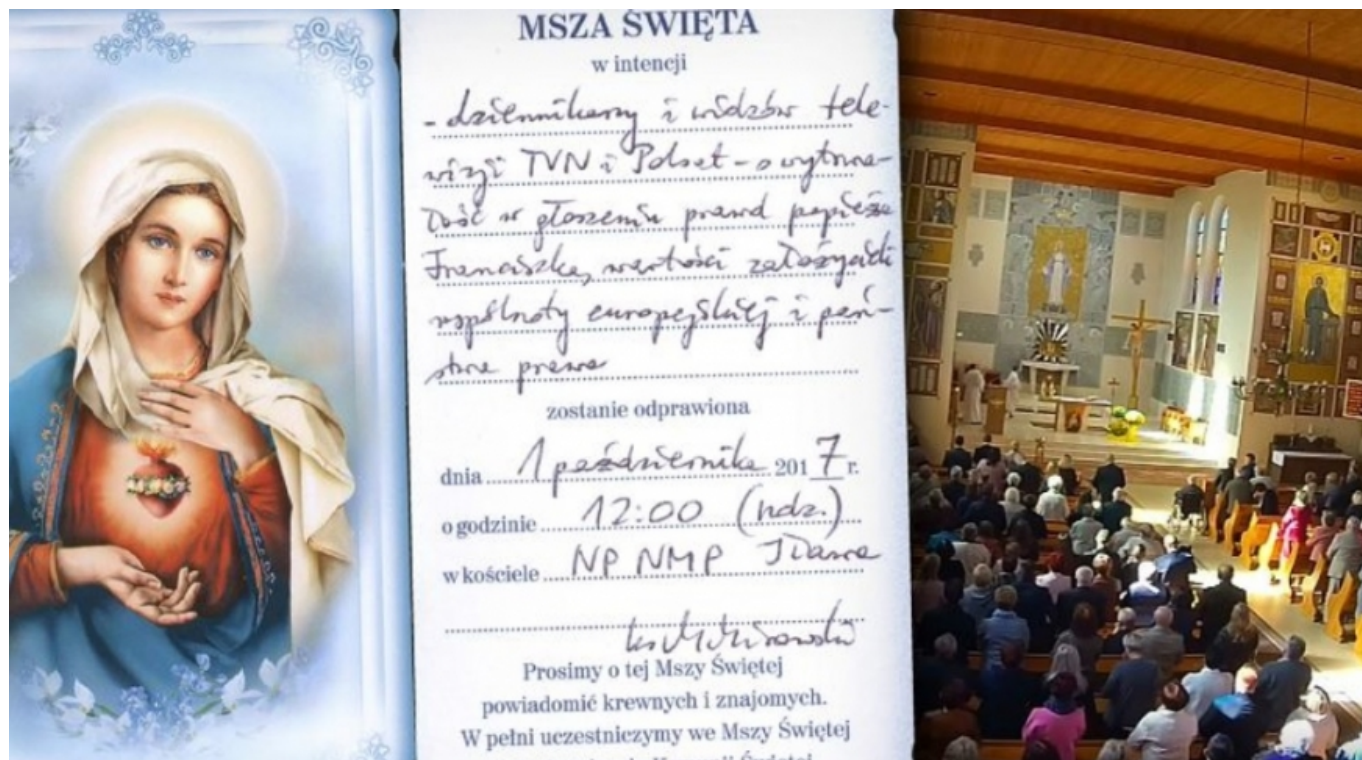 MSZA ŚWIĘTA
w intencji
- dziennikarzy i widzów tele-
wizji TVN i Polsat - o wytrwa-
łość w głoszeniu prawd papieża
Franciszka, wartości założycieli
wspólnoty europejskiej i pań-
stwa prawa
zostanie odprawiona
dnia 1 października 2017 r.
o godzinie 12:00 (ndz.)
w kościele NP NMP Iława
ks.
Prosimy o tej Mszy Świętej
powiadomić krewnych i znajomych.
W pełni uczestniczymy we Mszy Świętej